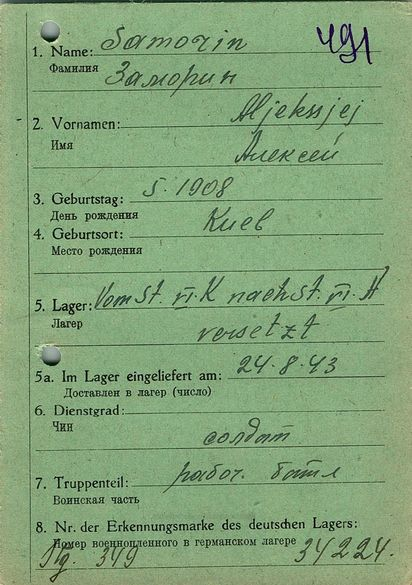 491
1. Name: Samorin
Фамилия Заморин
2. Vornamen: Aljekssjej
Имя Алексей
3. Geburtstag: 5. 1908
День рождения
4. Geburtsort: Киев
Место рождения
5. Lager: Vom St. VI. K nach St. VI. A
Лагер versetzt
5a. Im Lager eingeliefert am: 24.8.43
Доставлен в лагер (число)
6. Dienstgrad:
Чин солдат
7. Truppenteil: рабоч. батл
Воинская часть
8. Nr. der Erkennungsmarke des deutschen Lagers:
Номер военнопленного в германском лагере 34224.
349